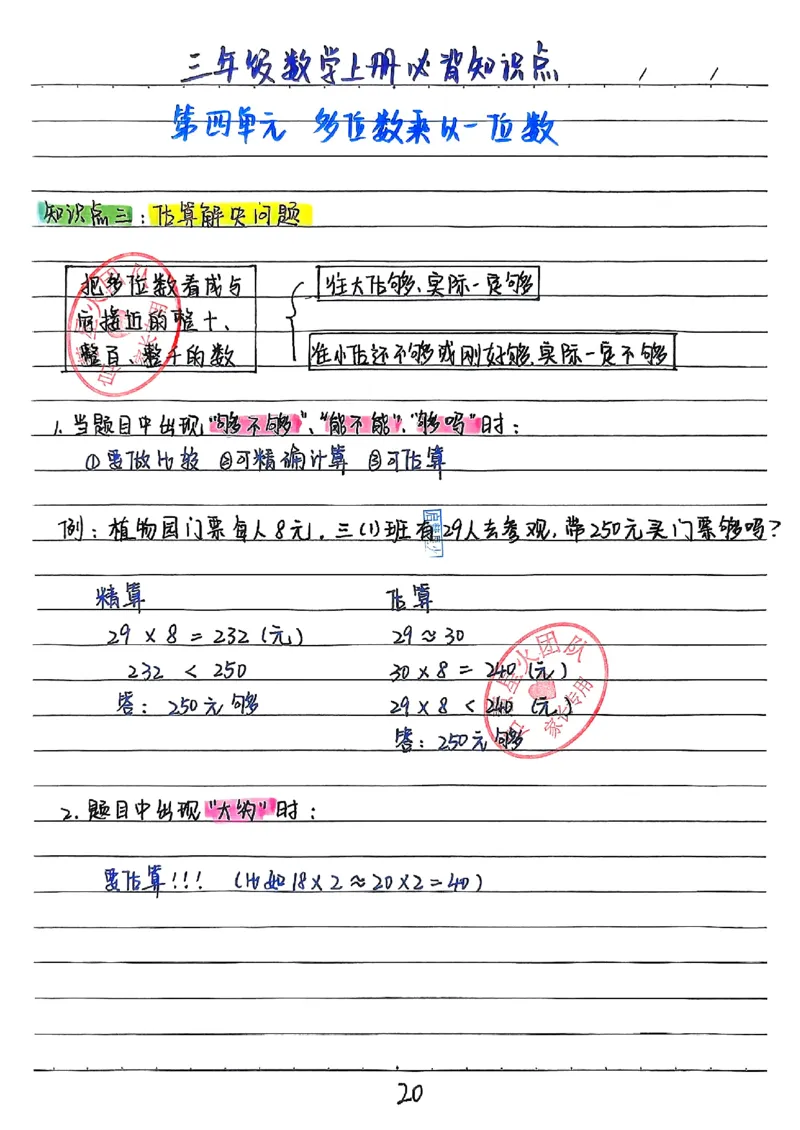 三年级数学上册必背知识点
第四单元 多位数乘以一位数
知识点三：估算解决问题
把多位数看成与
它接近的整十、
整百、整千的数
往大估够、实际一定够
往小估还不够或刚好够、实际一定不够
1. 当题目中出现"够不够"、"能不能"、"够吗"时：
①要做比较 ②可精确计算 ③可估算
例：植物园门票每人8元，三(1)班有29人去参观，带250元买门票够吗？
精算
29 × 8 = 232 (元)
232 < 250
答：250元够
估算
29 ≈ 30
30 × 8 = 240 (元)
29 × 8 < 240 (元)
答：250元够
2. 题目中出现"大约"时：
要估算!!! (比如18×2≈20×2=40)
星火团队
家长专用
20